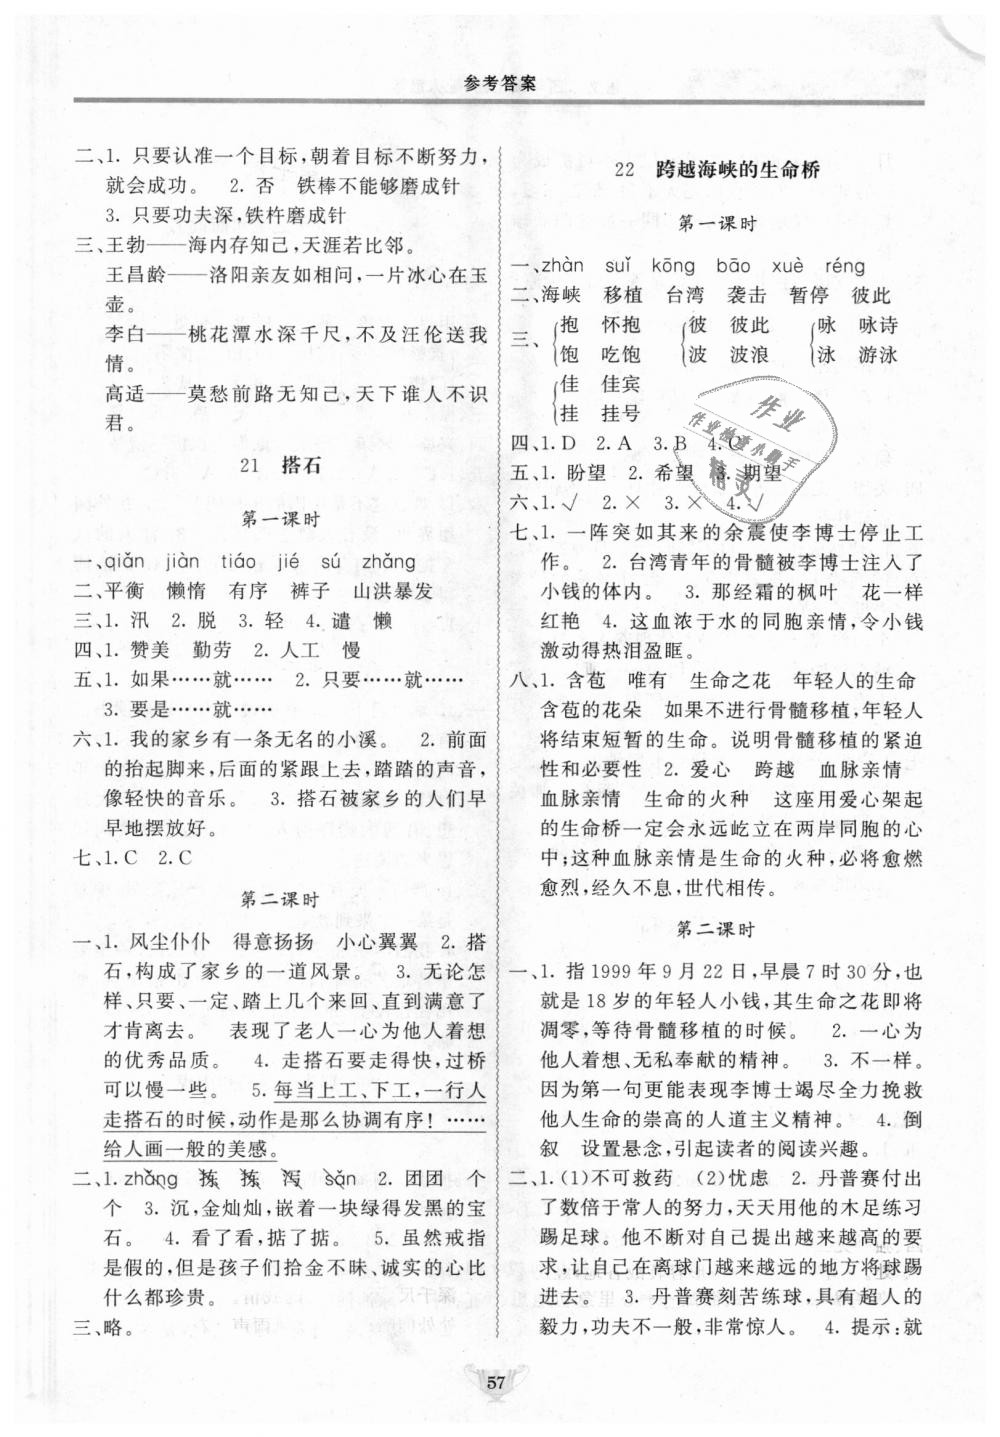 参考答案
二、1. 只要认准一个目标,朝着目标不断努力,
就会成功。 2. 否 铁棒不能够磨成针
3. 只要功夫深,铁杵磨成针
三、王勃——海内存知己,天涯若比邻。
王昌龄——洛阳亲友如相问,一片冰心在玉
壶。
李白——桃花潭水深千尺,不及汪伦送我
情。
高适——莫愁前路无知己,天下谁人不识
君。
21 搭石
第一课时
一、qiǎn jiàn tiáo jié sú zhǎng
二、平衡 懒惰 有序 裤子 山洪暴发
三、1. 汛 2. 脱 3. 轻 4. 谴 懒
四、1. 赞美 勤劳 2. 人工 慢
五、1. 如果……就…… 2. 只要……就……
3. 要是……就……
六、1. 我的家乡有一条无名的小溪。 2. 前面
的抬起脚来,后面的紧跟上去,踏踏的声音,
像轻快的音乐。 3. 搭石被家乡的人们早
早地摆放好。
七、1. C 2. C
第二课时
一、1. 风尘仆仆 得意扬扬 小心翼翼 2. 搭
石,构成了家乡的一道风景。 3. 无论怎
样、只要、一定、踏上几个来回、直到满意了
才肯离去。 表现了老人一心为他人着想
的优秀品质。 4. 走搭石要走得快,过桥
可以慢一些。 5. 每当上工、下工,一行人
走搭石的时候,动作是那么协调有序!……
给人画一般的美感。
二、1. zhǎng 拣 拣 泻 sǎn 2. 团团 个
个 3. 沉,金灿灿,嵌着一块绿得发黑的宝
石。 4. 看了看,掂了掂。 5. 虽然戒指
是假的,但是孩子们拾金不昧、诚实的心比
什么都珍贵。
三、略。
22 跨越海峡的生命桥
第一课时
一、zhàn suǐ kōng bāo xuè réng
二、海峡 移植 台湾 袭击 暂停 彼此
三、抱 怀抱 彼 彼此 咏 咏诗
饱 吃饱 波 波浪 泳 游泳
佳 佳宾
挂 挂号
四、1. D 2. A 3. B 4. C
五、1. 盼望 2. 希望 3. 期望
六、1. √ 2. × 3. × 4. √
七、1. 一阵突如其来的余震使李博士停止工
作。 2. 台湾青年的骨髓被李博士注入了
小钱的体内。 3. 那经霜的枫叶 花一样
红艳 4. 这血浓于水的同胞亲情,令小钱
激动得热泪盈眶。
八、1. 含苞 唯有 生命之花 年轻人的生命
含苞的花朵 如果不进行骨髓移植,年轻人
将结束短暂的生命。说明骨髓移植的紧迫
性和必要性 2. 爱心 跨越 血脉亲情
血脉亲情 生命的火种 这座用爱心架起
的生命桥一定会永远屹立在两岸同胞的心
中;这种血脉亲情是生命的火种,必将愈燃
愈烈,经久不息,世代相传。
第二课时
一、1. 指 1999 年 9 月 22 日,早晨 7 时 30 分,也
就是 18 岁的年轻人小钱,其生命之花即将
凋零,等待骨髓移植的时候。 2. 一心为
他人着想、无私奉献的精神。 3. 不一样。
因为第一句更能表现李博士竭尽全力挽救
他人生命的崇高的人道主义精神。 4. 倒
叙 设置悬念,引起读者的阅读兴趣。
二、1. (1)不可救药 (2)忧虑 2. 丹普赛付出
了数倍于常人的努力,天天用他的木足练习
踢足球。他对自己提出越来越高的要
求,让自己在离球门越来越远的地方将球踢
进去。 3. 丹普赛刻苦练球,具有超人的
毅力,功夫不一般,非常惊人。 4. 提示:就
作业
作业检查小助手
精灵
57